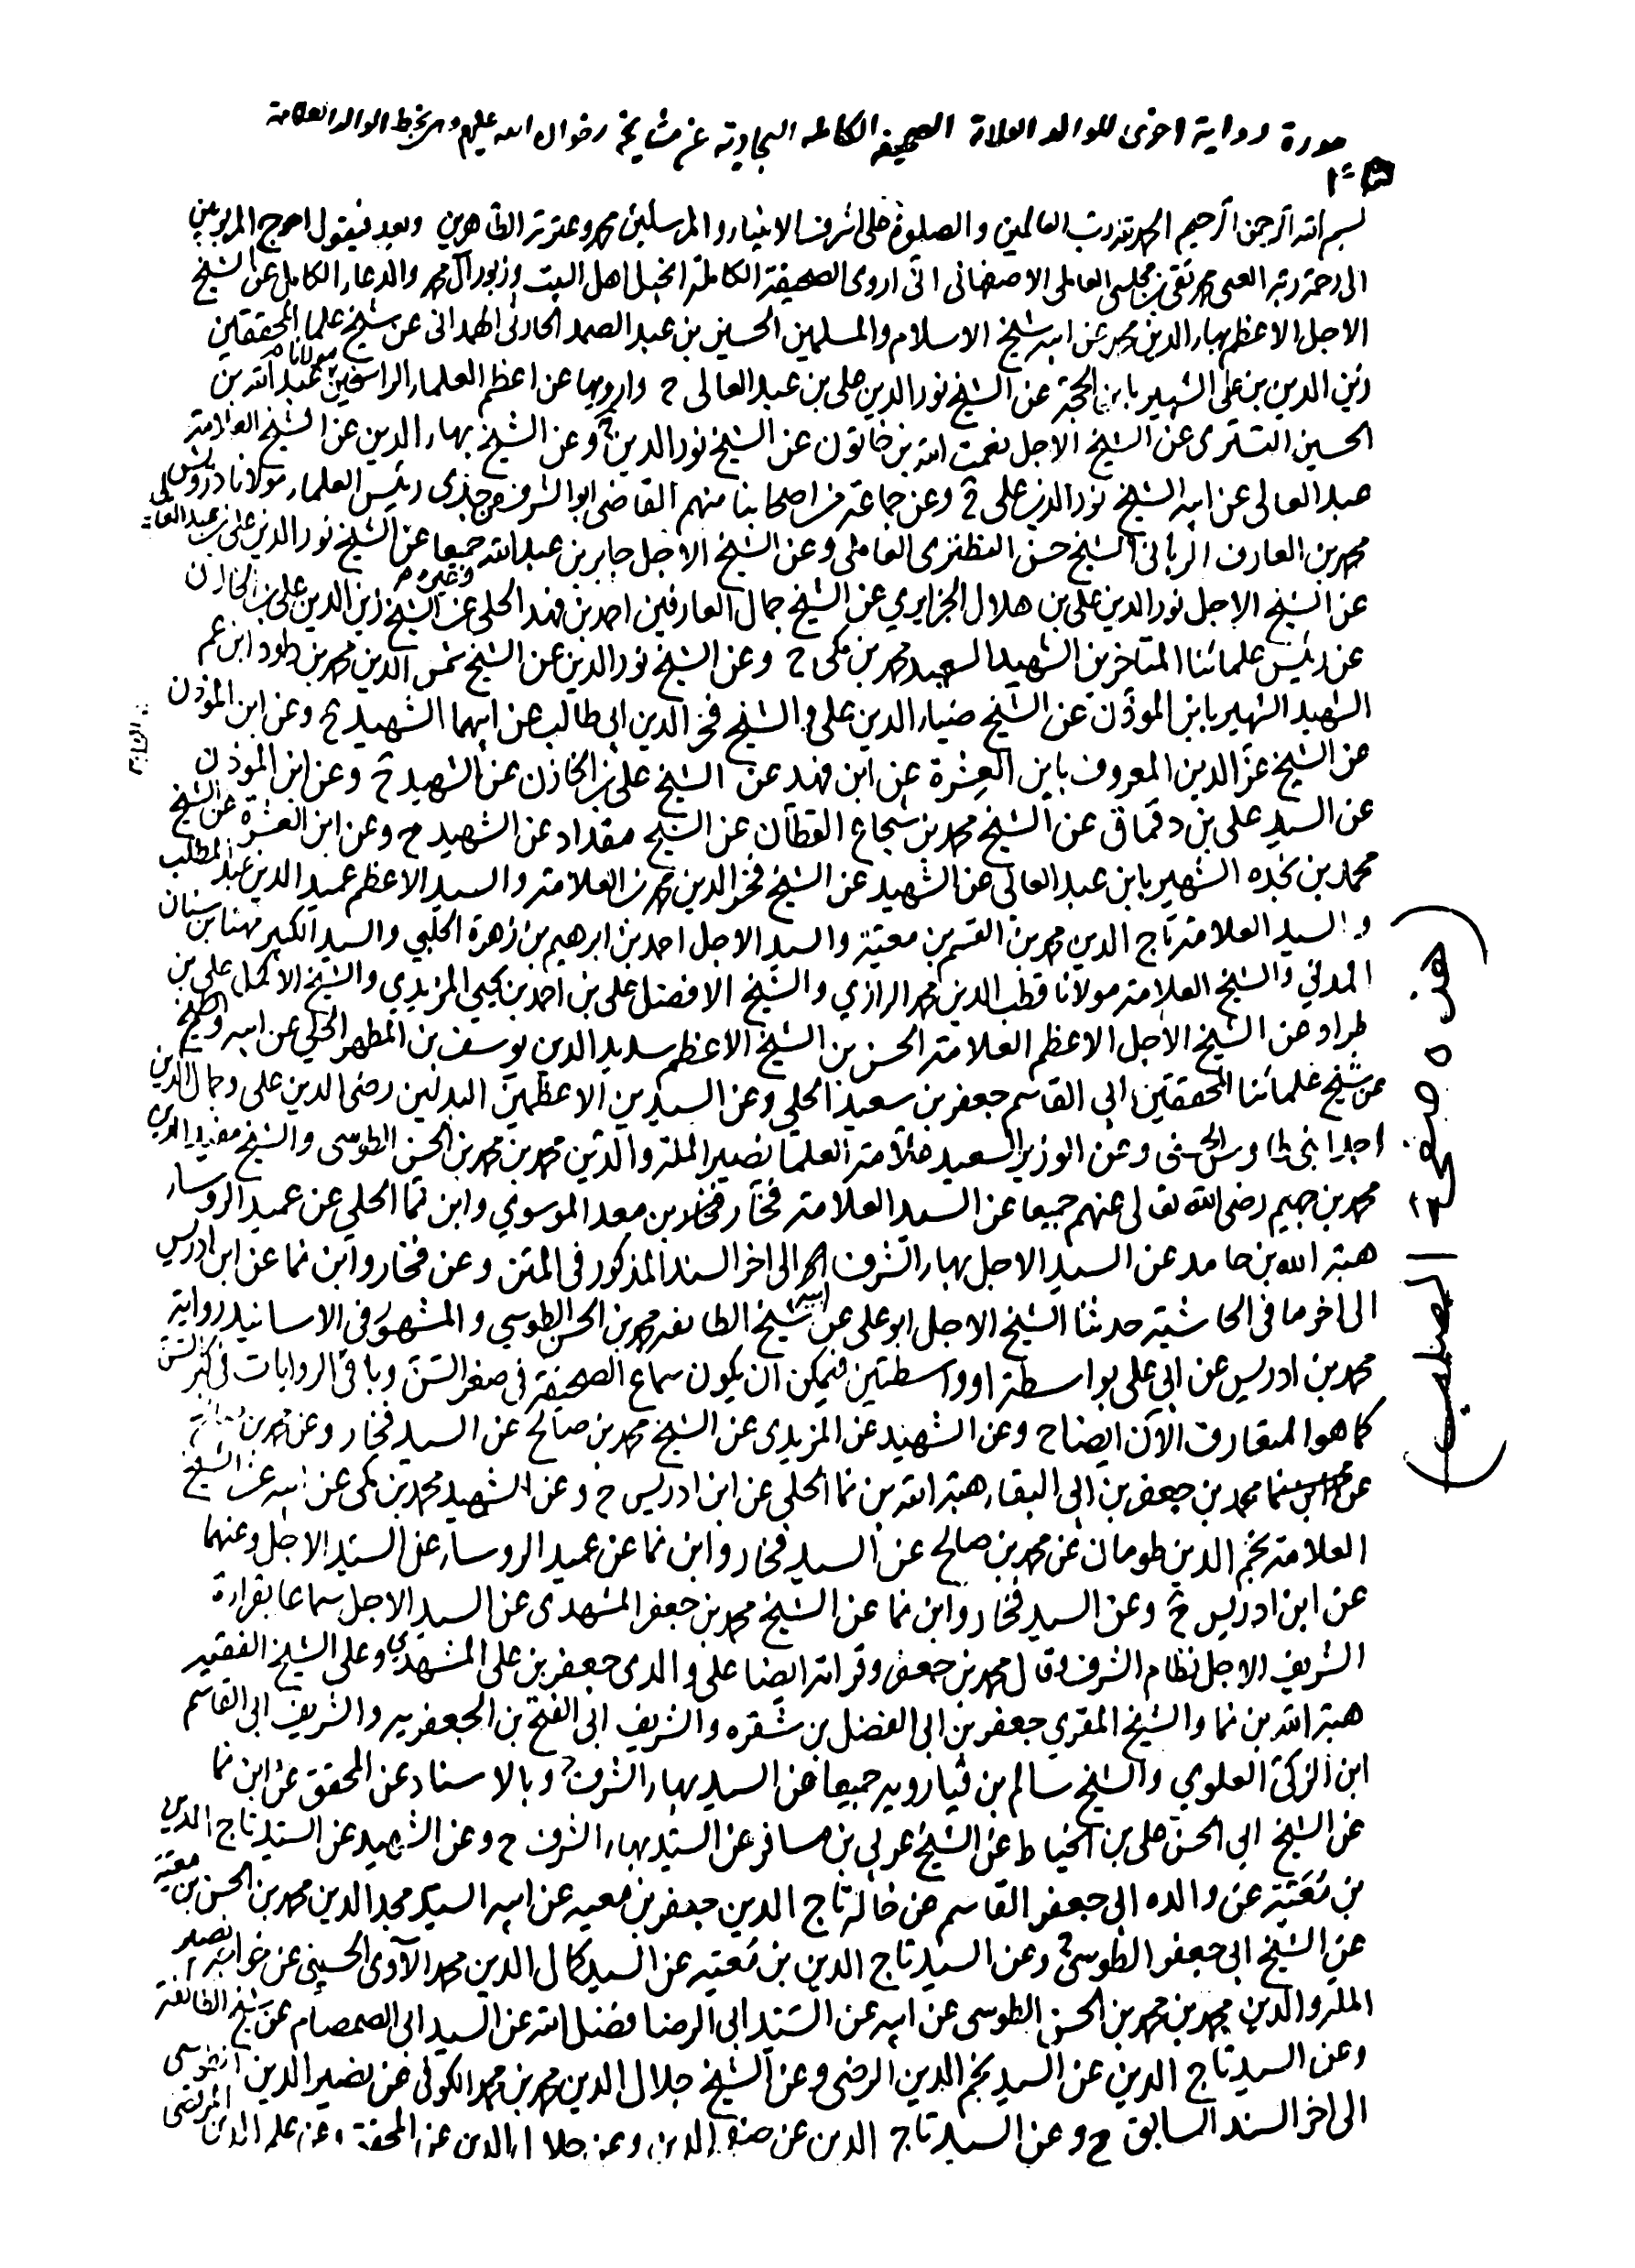 صورة رواية اخرى للوالد العلامة الصحيفة الكاملة السجادية عن مشايخه رضوان الله عليهم ومن خط الوالد العلامة
بسم الله الرحمن الرحيم الحمد لله رب العالمين والصلوة على اشرف الانبياء والمرسلين محمد وعترته الطاهرين وبعد فيقول احوج المربوبين
الى رحمة ربه الغنى محمد تقى بن مجلسى العاملى الاصفهانى انى اروى الصحيفة الكاملة انجيل اهل البيت وزبور آل محمد والدعاء الكامل عن الشيخ
الاجل الاعظم بهاء الدين محمد عن ابيه شيخ الاسلام والمسلمين الحسين بن عبد الصمد الحارثى الهمدانى عن شيخ علماء المحققين
زين الدين بن على الشهير بابن الحجة عن الشيخ نور الدين على بن عبد العالى ح وارويها عن اعظم العلماء الراسخين مولانا عبد الله بن
الحسين التسترى عن الشيخ الاجل نعمت الله بن خاتون عن الشيخ نور الدين ح وعن الشيخ بهاء الدين عن الشيخ العلامة
عبد العالى عن ابيه الشيخ نور الدين على ح وعن جماعة من اصحابنا منهم القاضى ابو الشرف و جدى رئيس العلماء مولانا درويش
محمد بن العارف الربانى الشيخ حسن النطنزى العاملى وعن الشيخ الاجل جابر بن عبد الله جميعا عن الشيخ نور الدين على بن عبد العالى
عن الشيخ الاجل نور الدين على بن هلال الجزايرى عن الشيخ جمال العارفين احمد بن فهد الحلى عن الشيخ وغيره زين الدين على بن الخازن
عن رئيس علمائنا المتاخرين الشهيد السعيد محمد بن مكى ح وعن الشيخ نور الدين عن الشيخ شمس الدين محمد بن داود ابن عم
الشهيد الشهير بابن الموذن عن الشيخ ضياء الدين على والشيخ فخر الدين ابى طالب عن ابيهما الشهيد ح وعن ابن الموذن
عن الشيخ عز الدين المعروف بابن العشرة عن ابن فهد عن الشيخ على بن الخازن عن الشهيد ح وعن ابن الموذن
عن السيد على بن دقماق عن الشيخ محمد بن شجاع القطان عن الشيخ مقداد عن الشهيد ح وعن ابن العشرة عن الشيخ
محمد بن نجده الشهير بابن عبد العالى عن الشهيد عن الشيخ فخر الدين محمد بن العلامة والسيد الاعظم عميد الدين عبد المطلب
والسيد العلامة تاج الدين محمد بن القسم بن معية والسيد الاجل احمد بن ابرهيم بن زهرة الحلبي والسيد الكبير مهنا بن سنان
المدني والشيخ العلامة مولانا قطب الدين محمد الرازي والشيخ الافضل على بن احمد بن يحيى المزيدي والشيخ الاكمل على بن
طراد عن الشيخ الاجل الاعظم العلامة الحسن بن الشيخ الاعظم سديد الدين يوسف بن المطهر الحلي عن ابيه
عن شيخ علمائنا المحققين ابى القاسم جعفر بن سعيد الحلي وعن السيدين الاعظمين البدلين رضى الدين على وجمال الدين
احمد ابنى طاوس الحسنى وعن الوزير السعيد علامة العلماء نصير الملة والدين محمد بن محمد بن الحسن الطوسى والشيخ مفيد الدين
محمد بن جهيم رضى الله تعالى عنهم جميعا عن السيد العلامة فخار بن معد الموسوي وابن نما الحلي عن عميد الروساء
هبة الله بن حامد عن السيد الاجل بهاء الشرف الى اخر السند المذكور فى المتن وعن فخار وابن نما عن ابن ادريس
الى اخر ما فى الحاشية حدثنا الشيخ الاجل ابو على عن ابيه شيخ الطائفة محمد بن الحسن الطوسي والمشهور فى الاسانيد رواية
محمد بن ادريس عن ابى على بواسطة او واسطتين فيمكن ان يكون سماع الصحيفة فى صغر السن وباقى الروايات فى كبر السن
كما هو المتعارف الآن ايضا ح وعن الشهيد عن المزيدى عن الشيخ محمد بن صالح عن السيد فخار وعن محمد بن
عن محمد بن جعفر بن ابى البقاء هبة الله بن نما الحلى عن ابن ادريس ح وعن الشهيد محمد بن مكى عن ابيه عن الشيخ
العلامة نجم الدين طومان عن محمد بن صالح عن السيد فخار وابن نما عن عميد الروساء عن السيد الاجل وعنهما
عن ابن ادريس ح وعن السيد فخار وابن نما عن الشيخ محمد بن جعفر المشهدى عن السيد الاجل سماعا بقراءة
الشريف الاجل نظام الشرف وقال محمد بن جعفر وقراته ايضا على والدى جعفر بن على المشهدي وعلى الشيخ الفقيه
هبة الله بن نما والشيخ المقري جعفر بن ابى الفضل بن شقره والشريف ابى الفتح بن الجعفريه والشريف ابى القاسم
ابن الزكى العلوي والشيخ سالم بن قبارويه جميعا عن السيد بهاء الشرف ح وبالاسناد عن المحقق عن ابن نما
عن الشيخ ابى الحسن على بن الخياط عن الشيخ عربى بن مسافر عن السيد بهاء الشرف ح وعن الشهيد عن السيد تاج الدين
بن معية عن والده ابى جعفر القاسم عن خاله تاج الدين جعفر بن معيه عن ابيه السيد مجد الدين محمد بن الحسن بن معية
عن الشيخ ابى جعفر الطوسى ح وعن السيد تاج الدين بن معيه عن السيد كمال الدين محمد الآوى الحسينى عن خواجه نصير
الملة والدين محمد بن محمد بن الحسن الطوسى عن ابيه عن السيد ابى الرضا فضل الله عن السيد ابى الصمصام عن شيخ الطائفة
وعن السيد تاج الدين عن السيد نجم الدين الرضى وعن الشيخ جلال الدين محمد بن محمد الكوفى عن نصير الدين الطوسى
الى اخر السند السابق ح وعن السيد تاج الدين عن صفى الدين وعن جلال الدين عن المحقق وعن علم الدين المرتضى
(هذه صفحة ٢ الصلب)